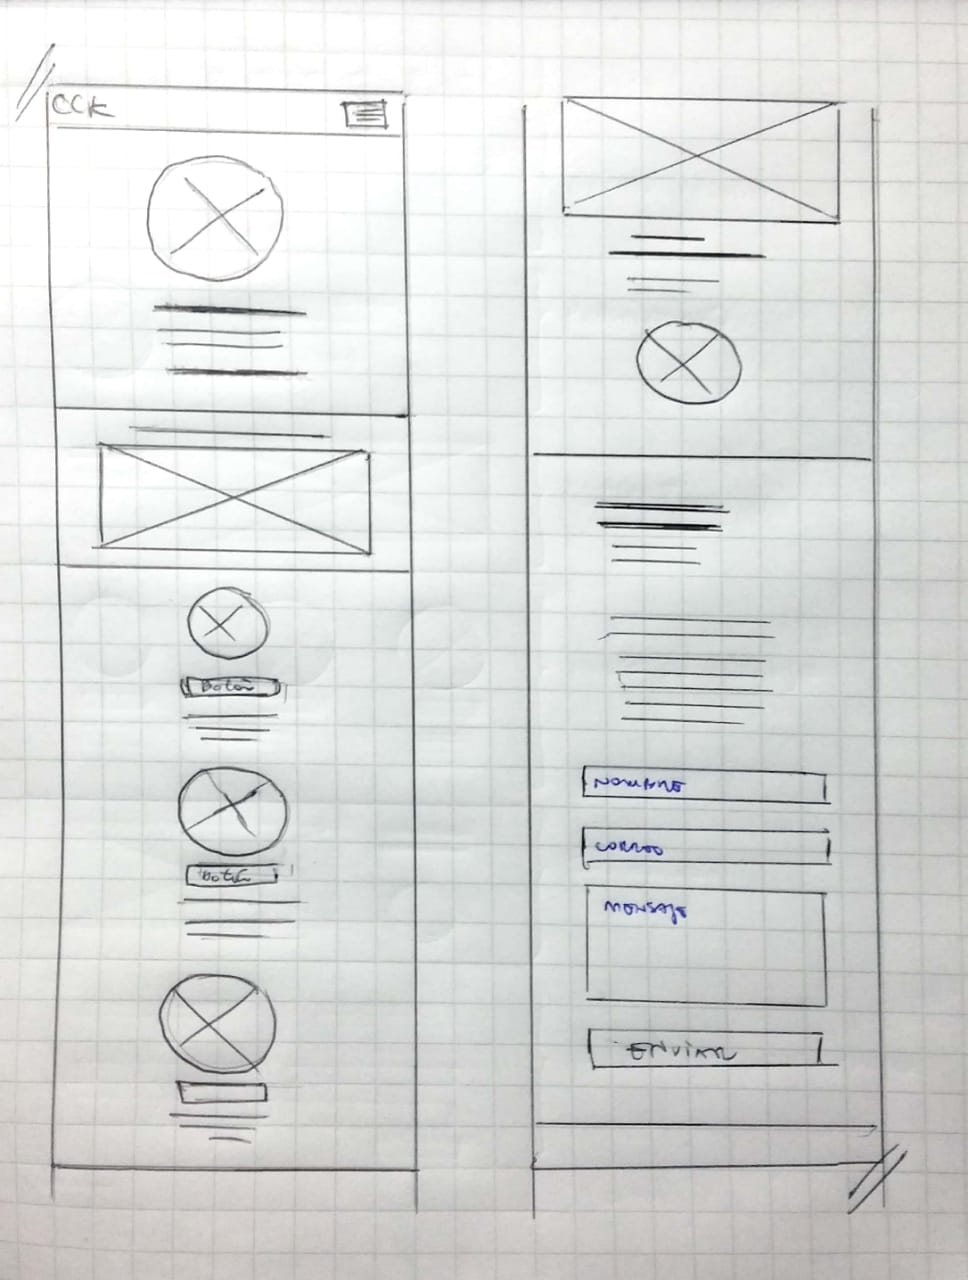 CCK
Botón
Botón
NOMBRE
CORREO
MENSAJE
ENVIAR